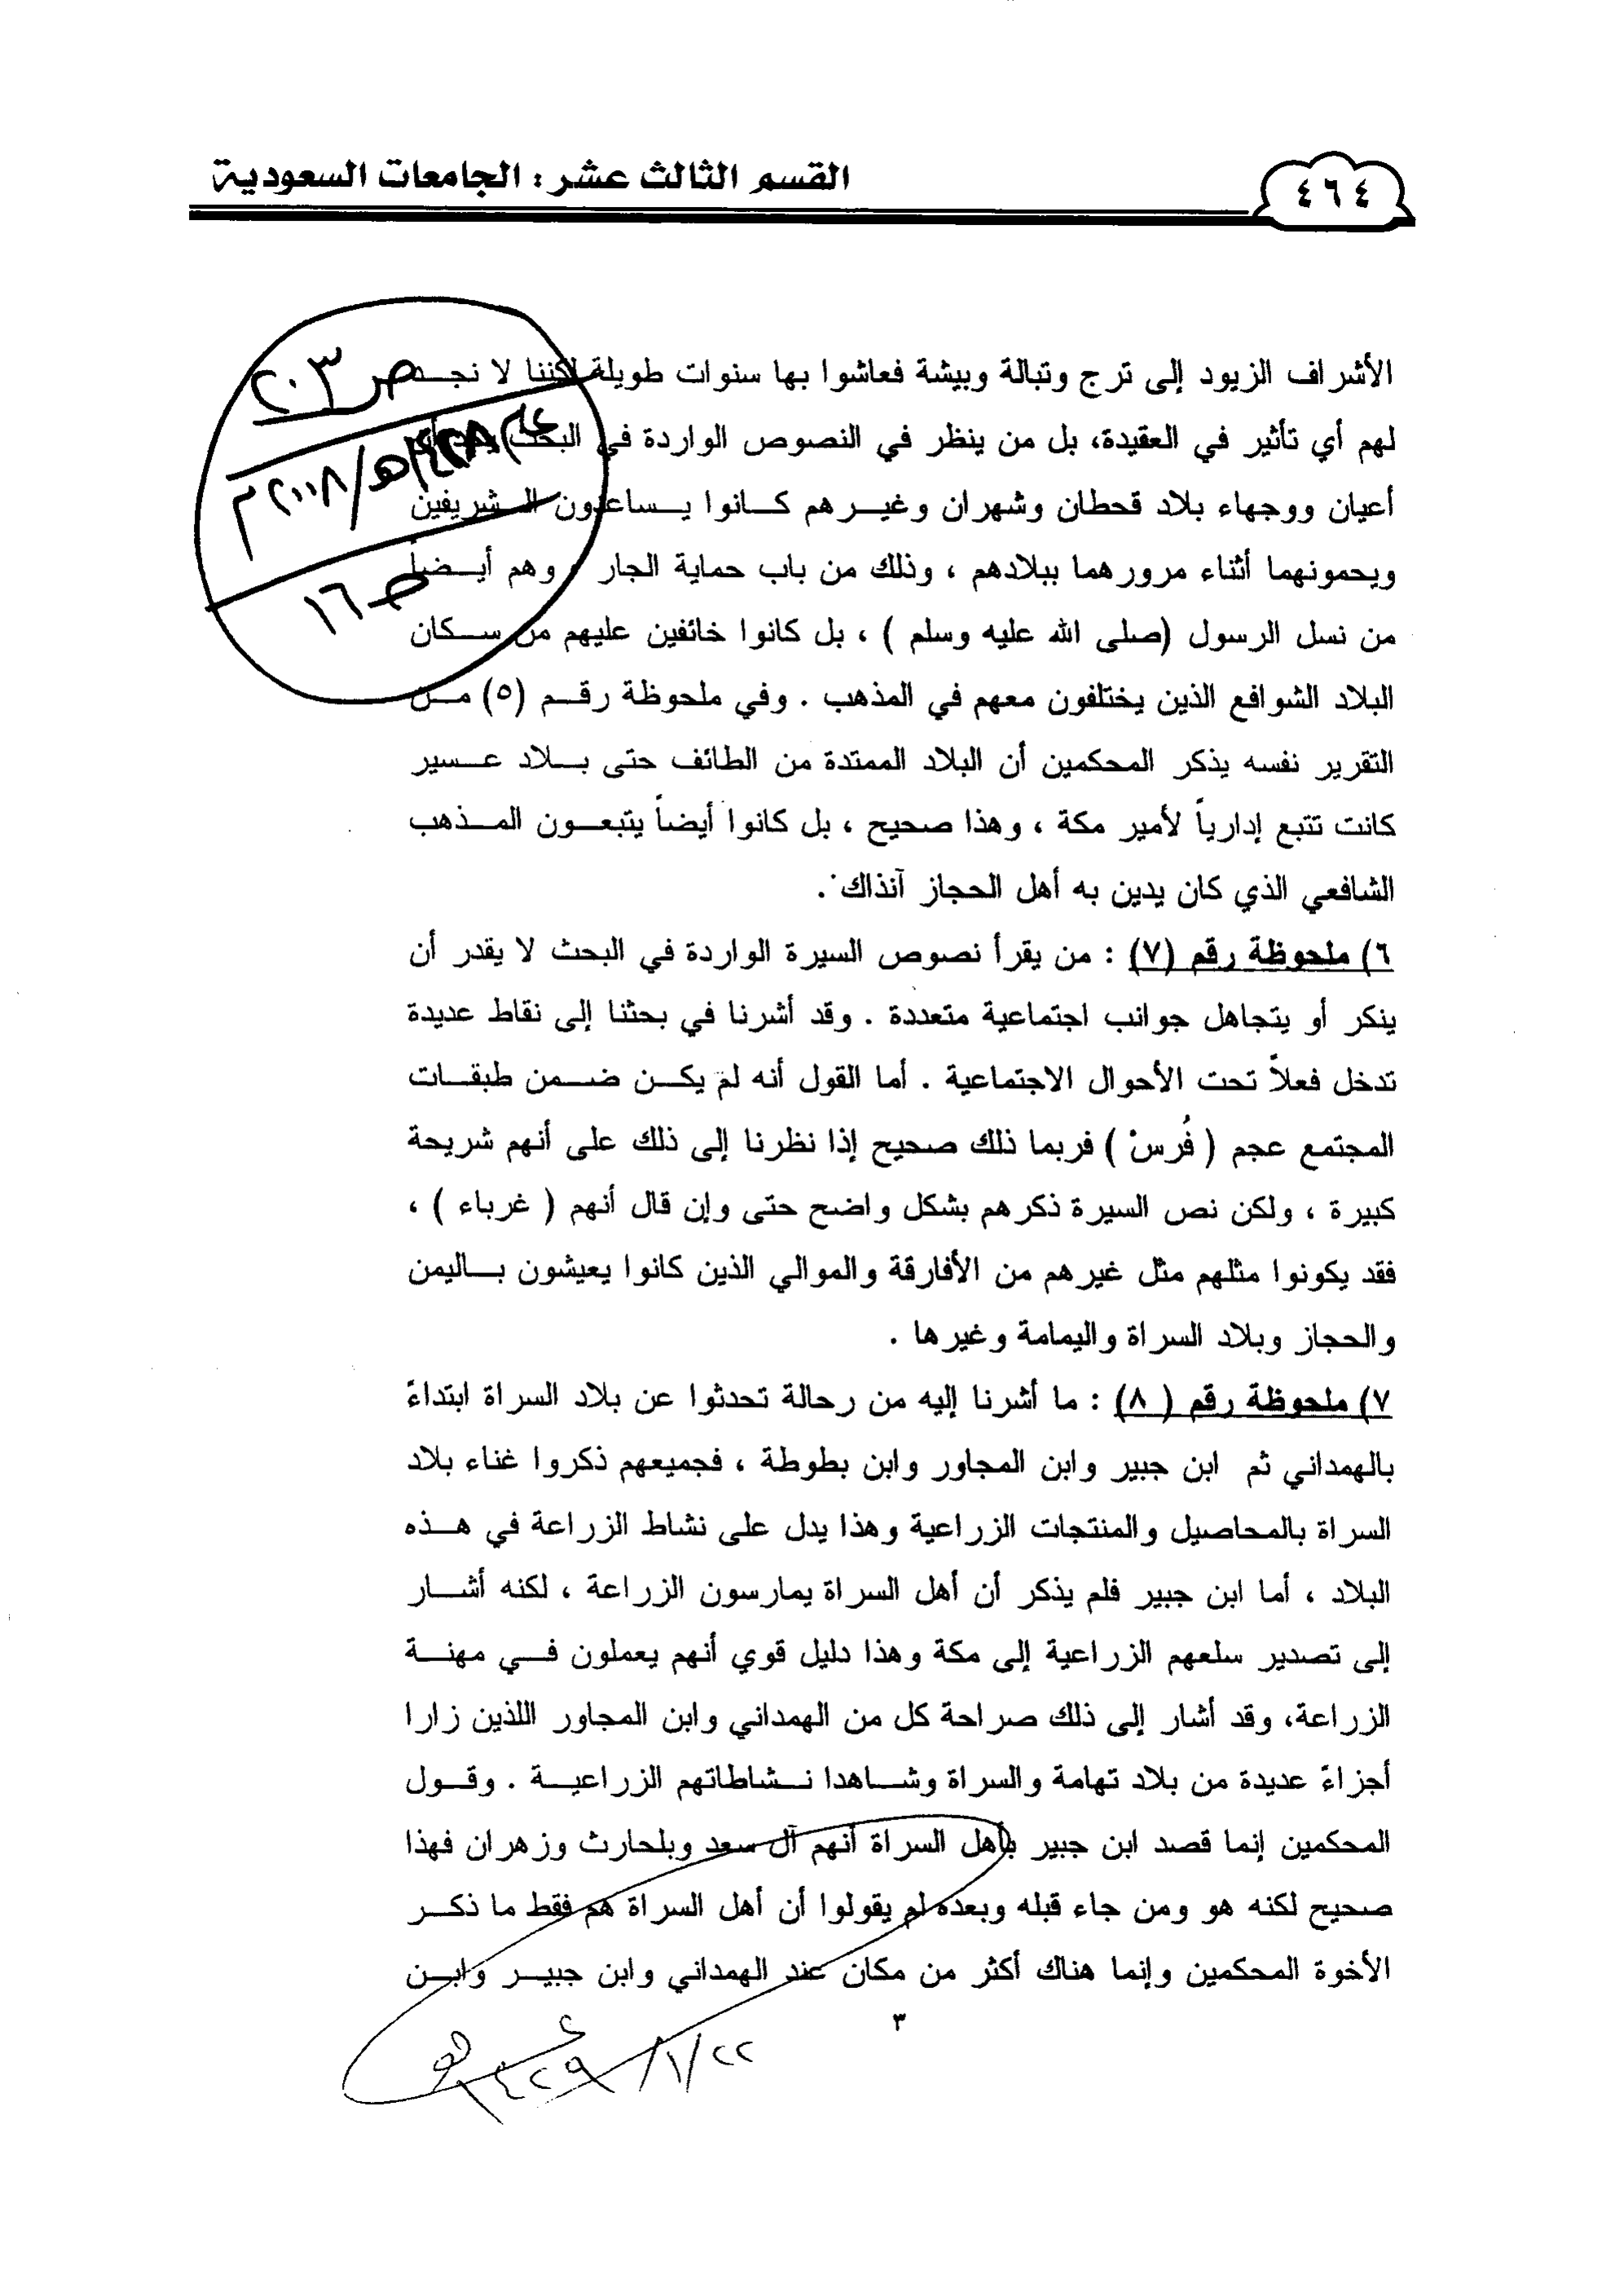 القسم الثالث عشر: الجامعات السعودية
٤٦٤
ص ٢٠٣
١٤٢٨هـ/٢٠٠٨م
ص ١٦
الأشراف الزيود إلى ترج وتبالة وبيشة فعاشوا بها سنوات طويلة لكننا لا نجد
لهم أي تأثير في العقيدة، بل من ينظر في النصوص الواردة في البحث
أعيان ووجهاء بلاد قحطان وشهران وغيرهم كانوا يساعدون الشريفين
ويحمونهما أثناء مرورهما ببلادهم ، وذلك من باب حماية الجار ، وهم أيضاً
من نسل الرسول (صلى الله عليه وسلم ) ، بل كانوا خائفين عليهم من سكان
البلاد الشوافع الذين يختلفون معهم في المذهب . وفي ملحوظة رقم (٥) من
التقرير نفسه يذكر المحكمين أن البلاد الممتدة من الطائف حتى بلاد عسير
كانت تتبع إدارياً لأمير مكة ، وهذا صحيح ، بل كانوا أيضاً يتبعون المذهب
الشافعي الذي كان يدين به أهل الحجاز آنذاك .
٦) ملحوظة رقم (٧) : من يقرأ نصوص السيرة الواردة في البحث لا يقدر أن
ينكر أو يتجاهل جوانب اجتماعية متعددة . وقد أشرنا في بحثنا إلى نقاط عديدة
تدخل فعلاً تحت الأحوال الاجتماعية . أما القول أنه لم يكن ضمن طبقات
المجتمع عجم ( فُرسْ ) فربما ذلك صحيح إذا نظرنا إلى ذلك على أنهم شريحة
كبيرة ، ولكن نص السيرة ذكرهم بشكل واضح حتى وإن قال أنهم ( غرباء ) ،
فقد يكونوا مثلهم مثل غيرهم من الأفارقة والموالي الذين كانوا يعيشون باليمن
والحجاز وبلاد السراة واليمامة وغيرها .
٧) ملحوظة رقم ( ٨) : ما أشرنا إليه من رحالة تحدثوا عن بلاد السراة ابتداءً
بالهمداني ثم ابن جبير وابن المجاور وابن بطوطة ، فجميعهم ذكروا غناء بلاد
السراة بالمحاصيل والمنتجات الزراعية وهذا يدل على نشاط الزراعة في هذه
البلاد ، أما ابن جبير فلم يذكر أن أهل السراة يمارسون الزراعة ، لكنه أشار
إلى تصدير سلعهم الزراعية إلى مكة وهذا دليل قوي أنهم يعملون في مهنة
الزراعة، وقد أشار إلى ذلك صراحة كل من الهمداني وابن المجاور اللذين زارا
أجزاءً عديدة من بلاد تهامة والسراة وشاهدا نشاطاتهم الزراعية . وقول
المحكمين إنما قصد ابن جبير بأهل السراة أنهم آل سعد وبلحارث وزهران فهذا
صحيح لكنه هو ومن جاء قبله وبعده لم يقولوا أن أهل السراة هم فقط ما ذكر
الأخوة المحكمين وإنما هناك أكثر من مكان عند الهمداني وابن جبير وابن
٣
٢٢/١/١٤٢٩هـ